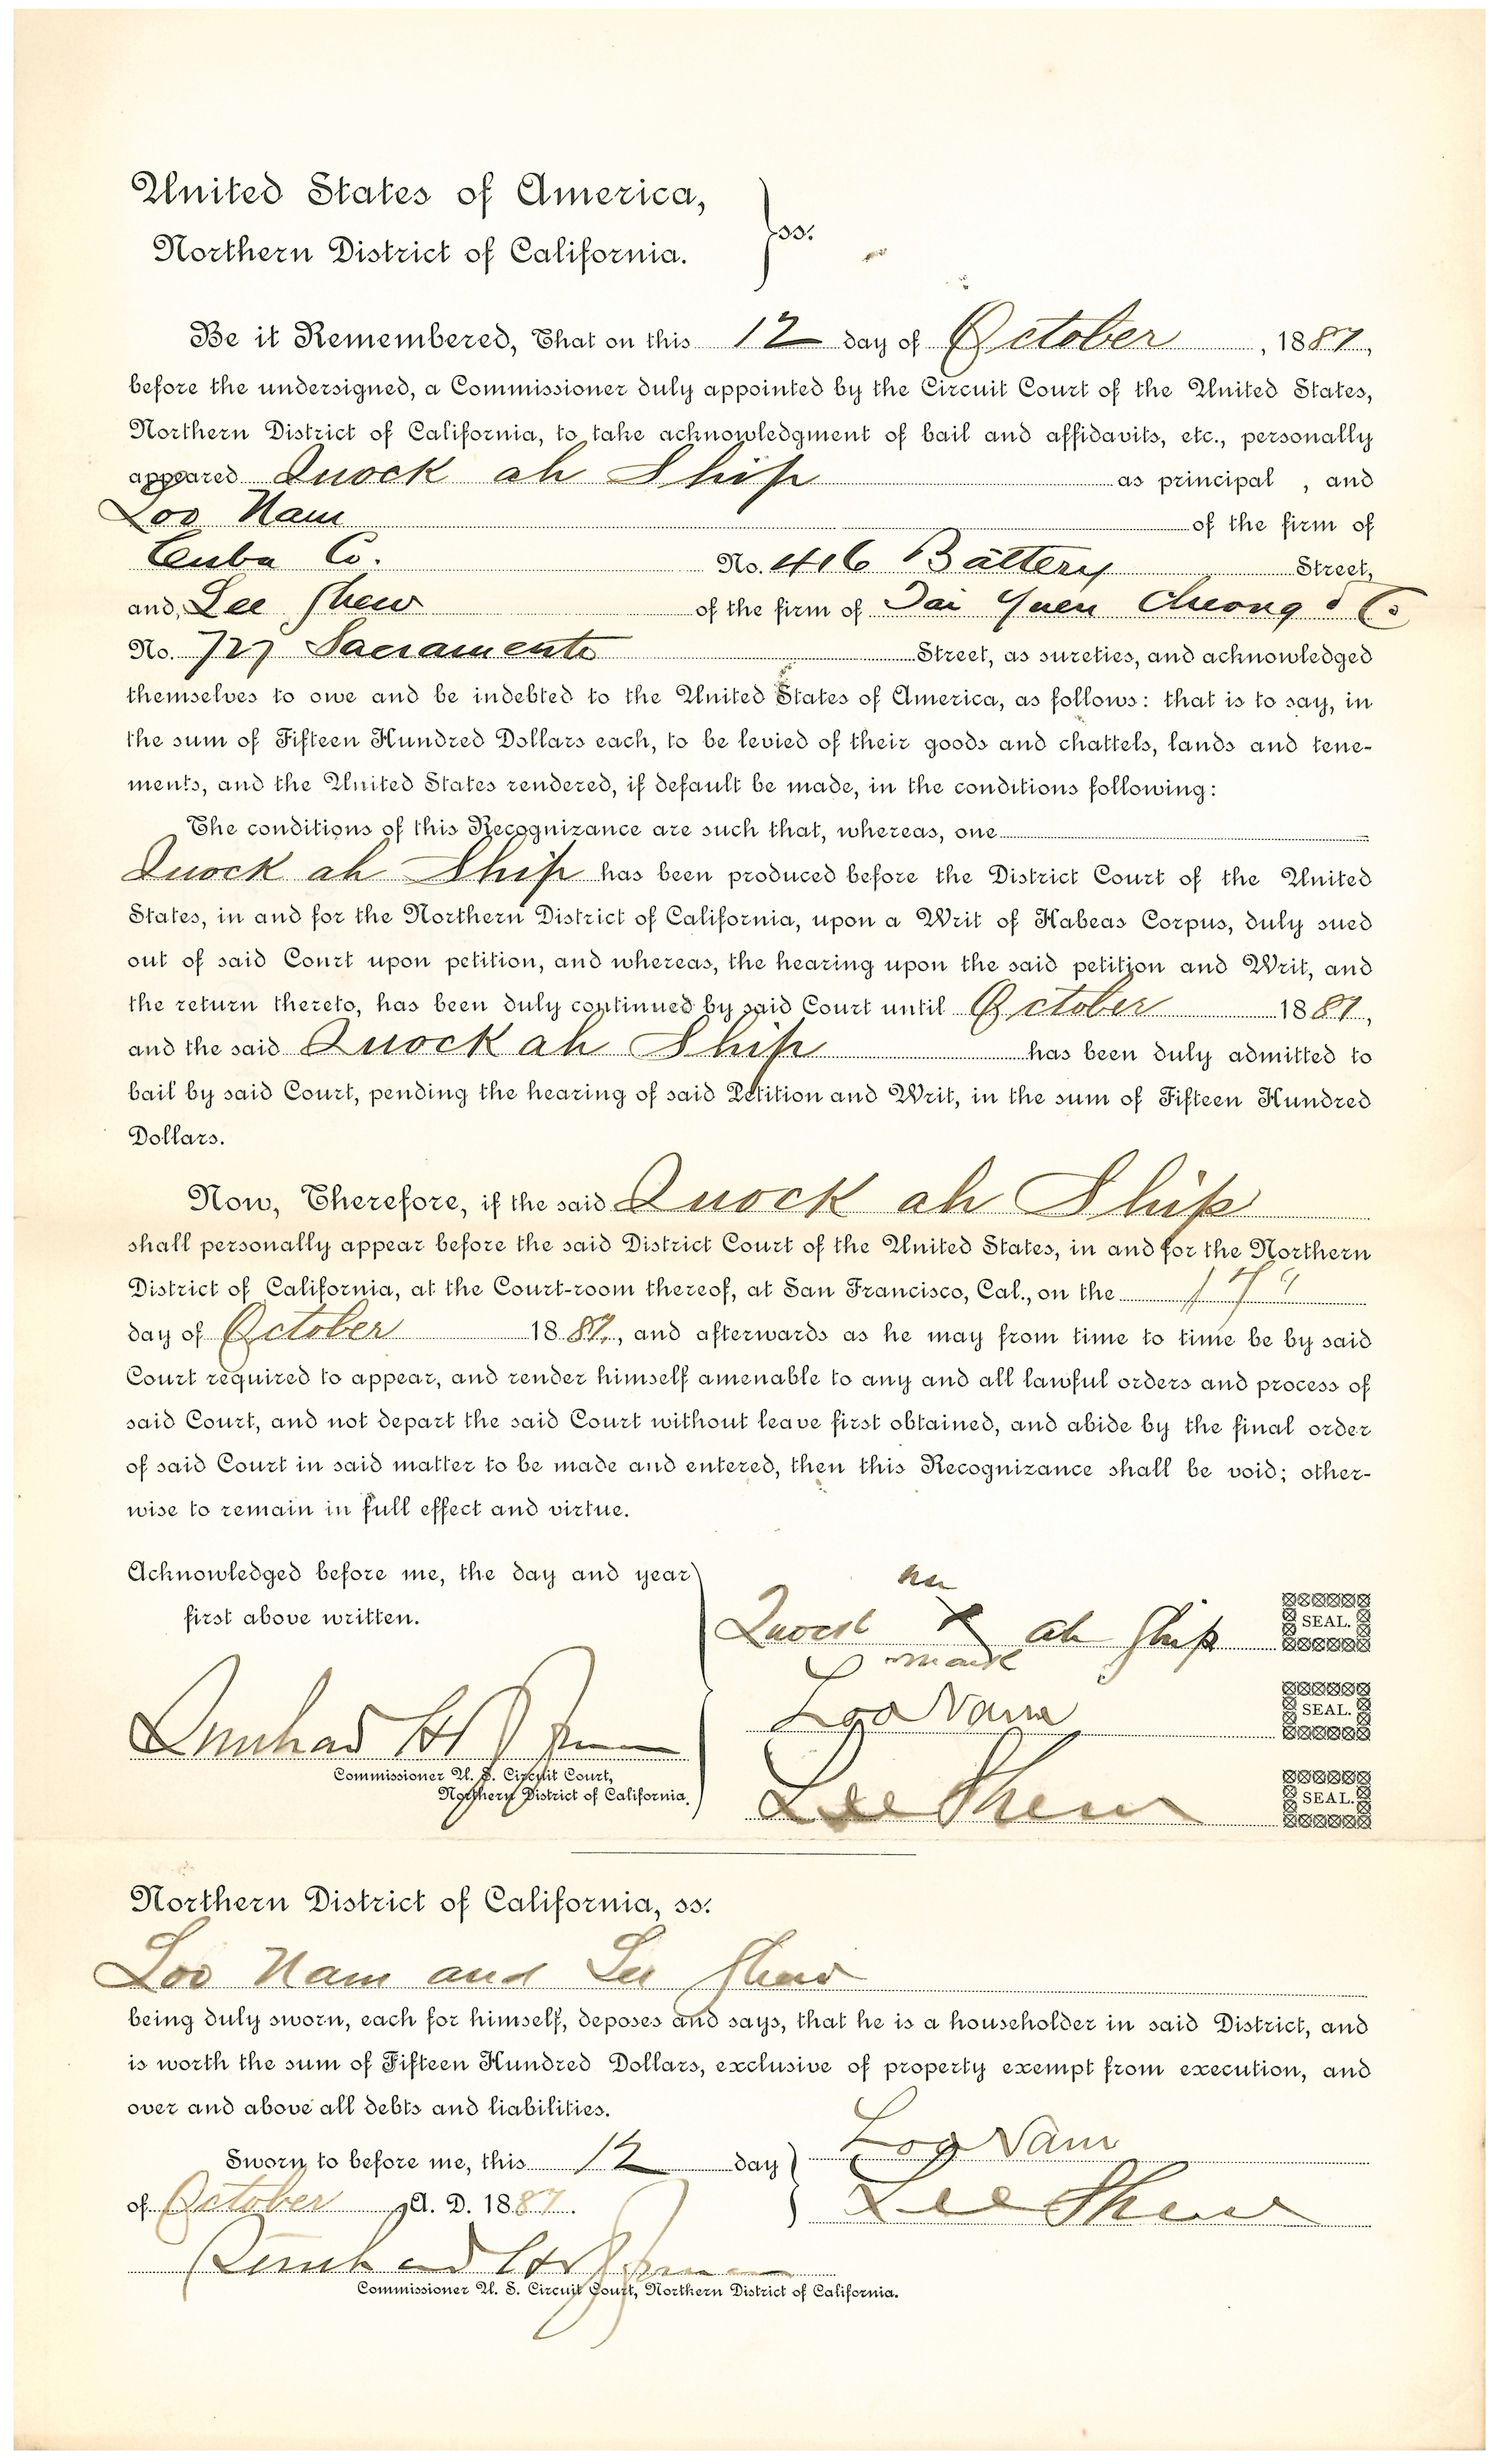 United States of America,
Northern District of California.
ss.
Be it Remembered, That on this 12 day of October, 1887,
before the undersigned, a Commissioner duly appointed by the Circuit Court of the United States,
Northern District of California, to take acknowledgment of bail and affidavits, etc., personally
appeared Quock ah Ship as principal , and
Loo Nam of the firm of
Cuba Co. No. 416 Battery Street,
and Lee Shew of the firm of Tai Yuen Cheong & Co
No. 727 Sacramento Street, as sureties, and acknowledged
themselves to owe and be indebted to the United States of America, as follows: that is to say, in
the sum of Fifteen Hundred Dollars each, to be levied of their goods and chattels, lands and tene-
ments, and the United States rendered, if default be made, in the conditions following:
The conditions of this Recognizance are such that, whereas, one
Quock ah Ship has been produced before the District Court of the United
States, in and for the Northern District of California, upon a Writ of Habeas Corpus, duly sued
out of said Court upon petition, and whereas, the hearing upon the said petition and Writ, and
the return thereto, has been duly continued by said Court until October 1887,
and the said Quock ah Ship has been duly admitted to
bail by said Court, pending the hearing of said Petition and Writ, in the sum of Fifteen Hundred
Dollars.
Now, Therefore, if the said Quock ah Ship
shall personally appear before the said District Court of the United States, in and for the Northern
District of California, at the Court-room thereof, at San Francisco, Cal., on the 17"
day of October 1887, and afterwards as he may from time to time be by said
Court required to appear, and render himself amenable to any and all lawful orders and process of
said Court, and not depart the said Court without leave first obtained, and abide by the final order
of said Court in said matter to be made and entered, then this Recognizance shall be void; other-
wise to remain in full effect and virtue.
Acknowledged before me, the day and year
first above written.
his
Quock X ah Ship SEAL.
mark
Loo Nam SEAL.
Commissioner U. S. Circuit Court,
Northern District of California.
Lee Shew SEAL.
Northern District of California, ss.
Loo Nam and Lee Shew
being duly sworn, each for himself, deposes and says, that he is a householder in said District, and
is worth the sum of Fifteen Hundred Dollars, exclusive of property exempt from execution, and
over and above all debts and liabilities.
Sworn to before me, this 12 day
Loo Nam
of October A. D. 1887.
Lee Shew
Commissioner U. S. Circuit Court, Northern District of California.